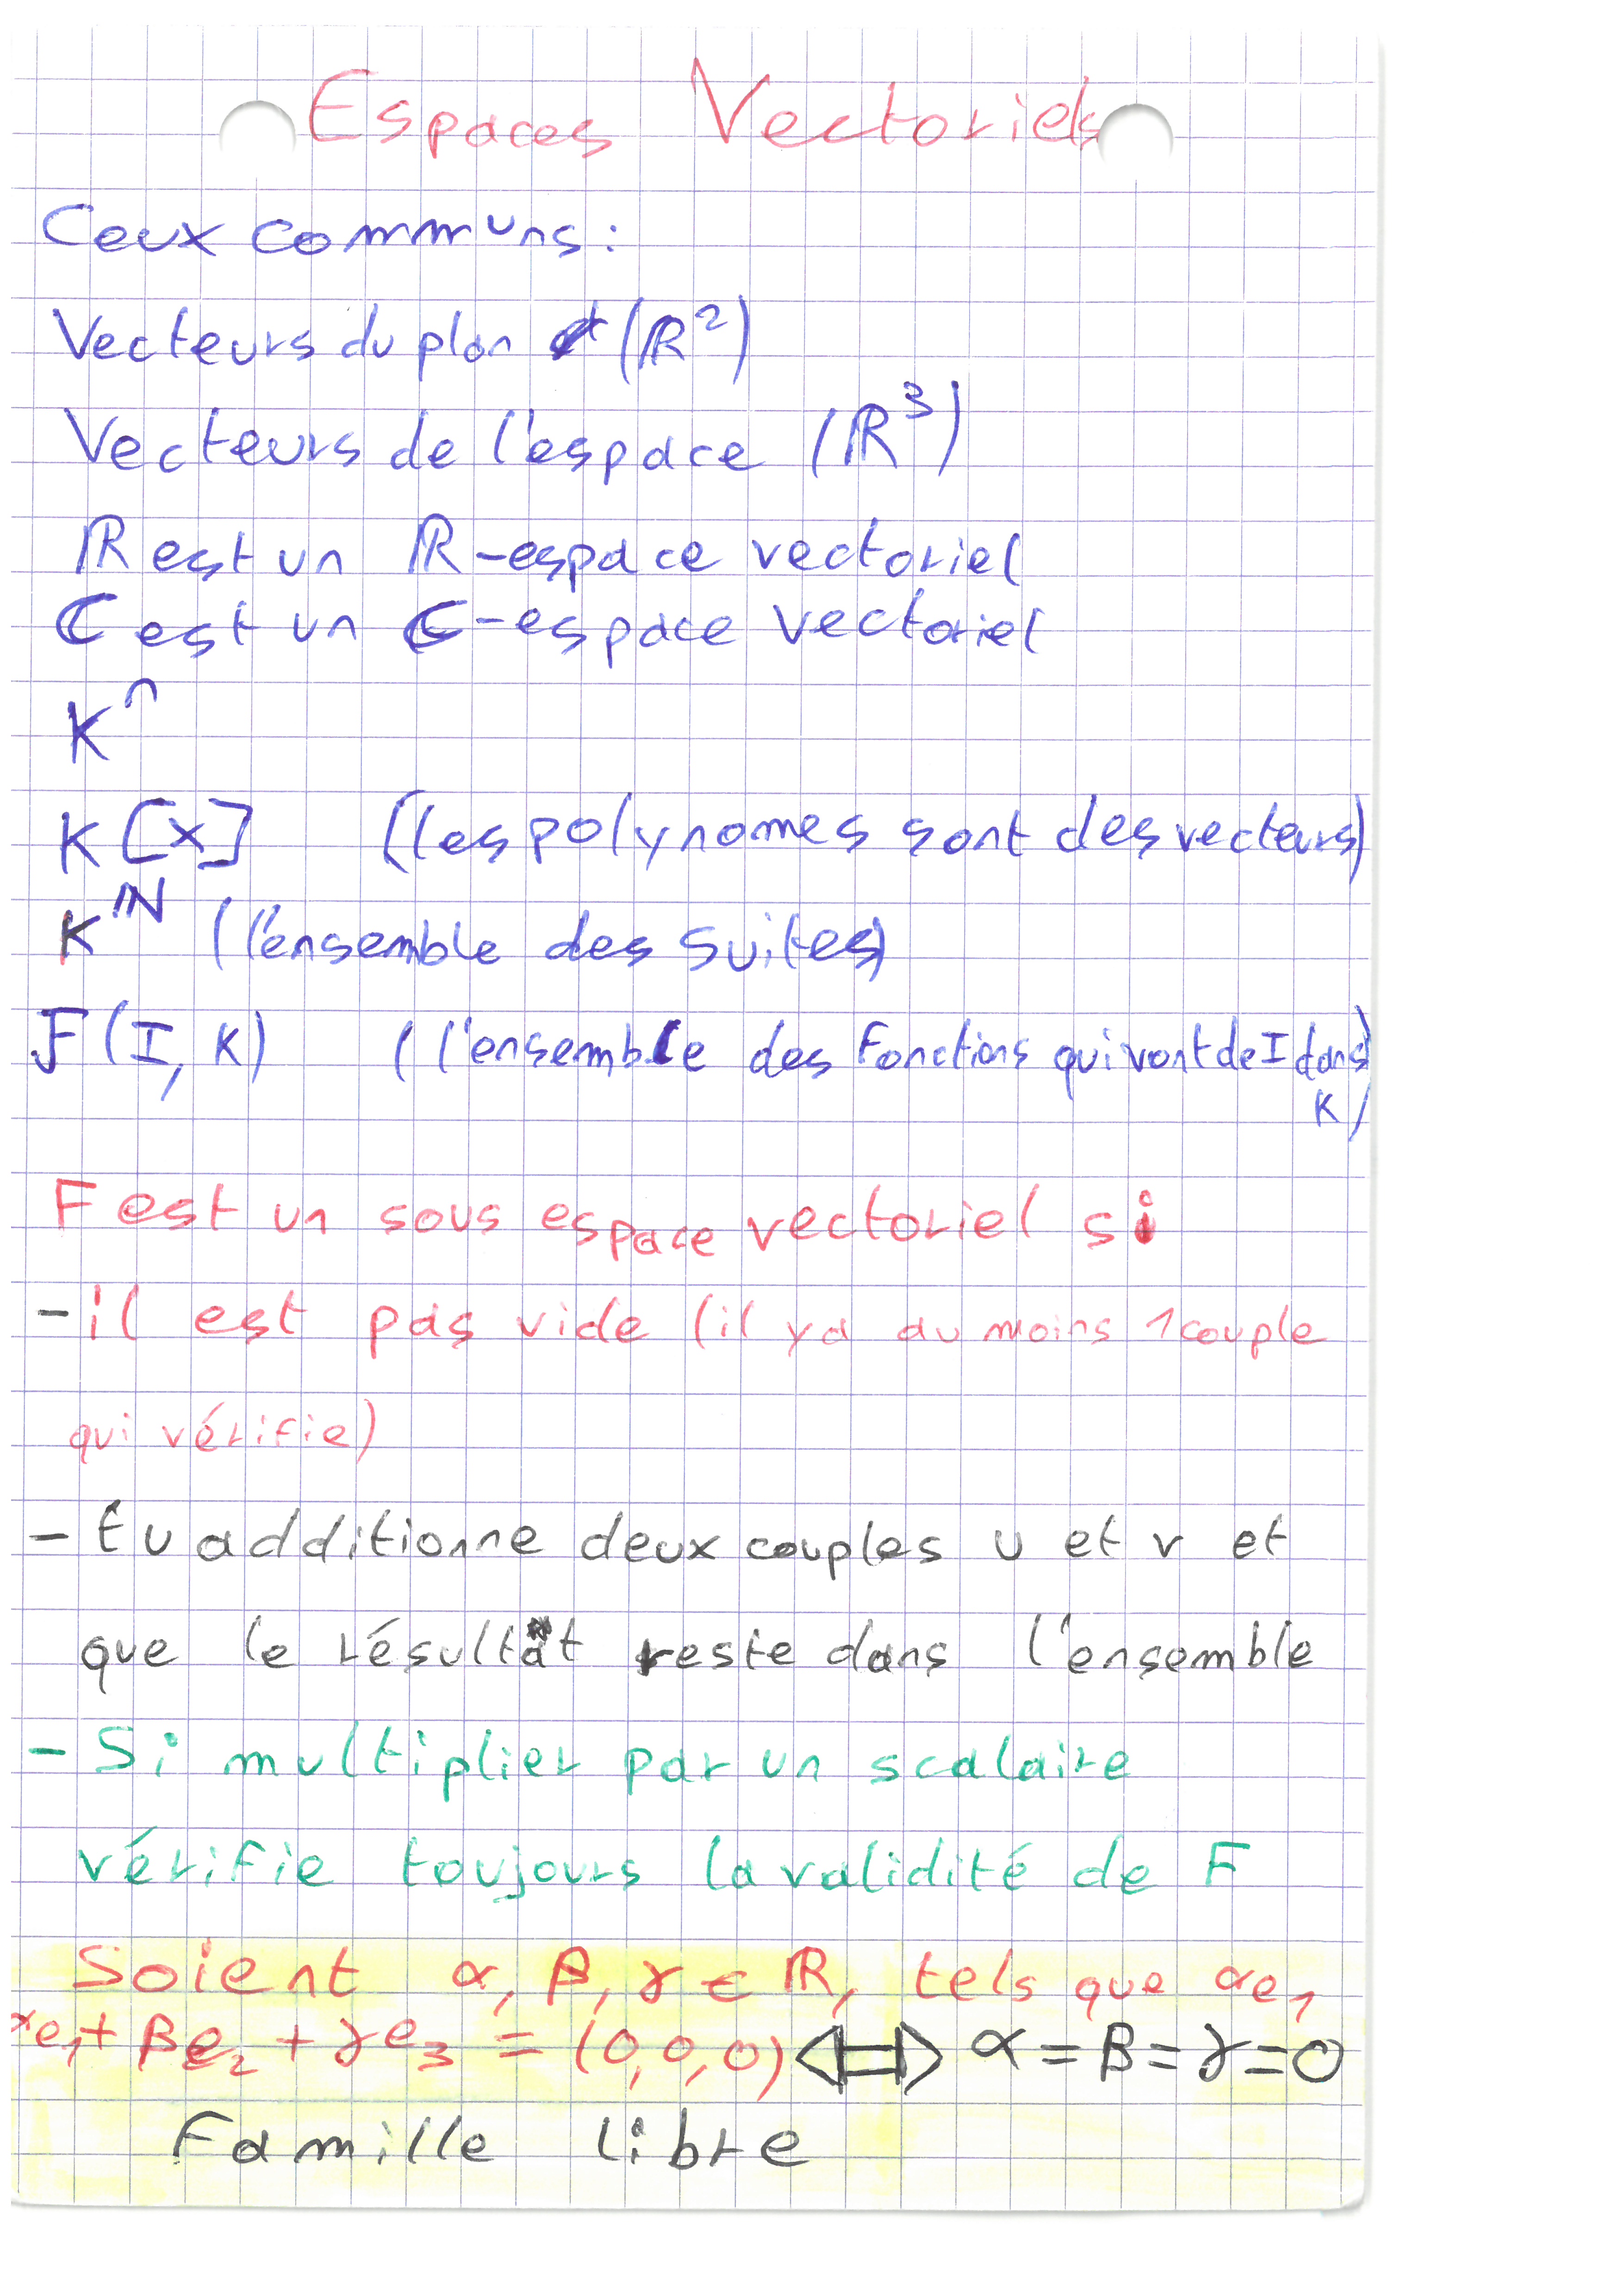 Espaces Vectoriels
Ceux communs :
Vecteurs du plan (ℝ²)
Vecteurs de l'espace (ℝ³)
ℝ est un ℝ-espace vectoriel
ℂ est un ℂ-espace vectoriel
Kⁿ
K[X] (les polynomes sont des vecteurs)
K^ℕ (l'ensemble des suites)
F(I, K) (l'ensemble des fonctions qui vont de I dans
K)
F est un sous espace vectoriel si
- il est pas vide (il y a au moins 1 couple
qui vérifie)
- tu additionne deux couples u et v et
que le résultat reste dans l'ensemble
- Si multiplier par un scalaire
vérifie toujours la validité de F
Soient α, β, γ ∈ ℝ, tels que αe₁
αe₁ + βe₂ + γe₃ = (0,0,0) ⟺ α = β = γ = 0
Famille libre